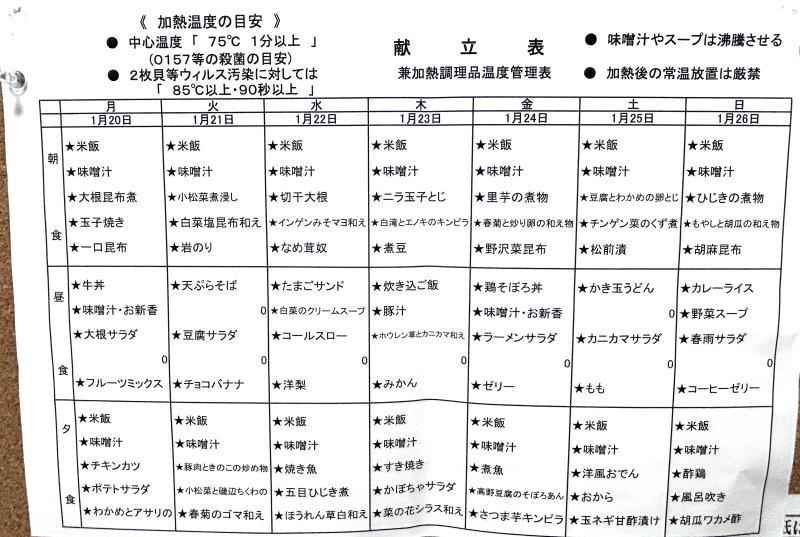 《 加熱温度の目安 》
● 中心温度「 75℃ 1分以上 」
(O157等の殺菌の目安)
● 2枚貝等ウィルス汚染に対しては
「 85℃以上・90秒以上 」
献 立 表
兼加熱調理品温度管理表
● 味噌汁やスープは沸騰させる
● 加熱後の常温放置は厳禁
月 火 水 木 金 土 日
1月20日 1月21日 1月22日 1月23日 1月24日 1月25日 1月26日
朝食
★米飯 ★米飯 ★米飯 ★米飯 ★米飯 ★米飯 ★米飯
★味噌汁 ★味噌汁 ★味噌汁 ★味噌汁 ★味噌汁 ★味噌汁 ★味噌汁
★大根昆布煮 ★小松菜煮浸し ★切干大根 ★ニラ玉子とじ ★里芋の煮物 ★豆腐とわかめの卵とじ ★ひじきの煮物
★玉子焼き ★白菜塩昆布和え ★インゲンみそマヨ和え ★白滝とエノキのキンピラ ★春菊と炒り卵の和え物 ★チンゲン菜のくず煮 ★もやしと胡瓜の和え物
★一口昆布 ★岩のり ★なめ茸奴 ★煮豆 ★野沢菜昆布 ★松前漬 ★胡麻昆布
昼食
★牛丼 ★天ぷらそば ★たまごサンド ★炊き込ご飯 ★鶏そぼろ丼 ★かき玉うどん ★カレーライス
★味噌汁・お新香 0 ★白菜のクリームスープ ★豚汁 ★味噌汁・お新香 0 ★野菜スープ
★大根サラダ ★豆腐サラダ ★コールスロー ★ホウレン草とカニカマ和え ★ラーメンサラダ ★カニカマサラダ ★春雨サラダ
0 0 0 0 0 0 0
★フルーツミックス ★チョコバナナ ★洋梨 ★みかん ★ゼリー ★もも ★コーヒーゼリー
夕食
★米飯 ★米飯 ★米飯 ★米飯 ★米飯 ★米飯 ★米飯
★味噌汁 ★味噌汁 ★味噌汁 ★味噌汁 ★味噌汁 ★味噌汁 ★味噌汁
★チキンカツ ★豚肉ときのこの炒め物 ★焼き魚 ★すき焼き ★煮魚 ★洋風おでん ★酢鶏
★ポテトサラダ ★小松菜と磯辺ちくわの ★五目ひじき煮 ★かぼちゃサラダ ★高野豆腐のそぼろあん ★おから ★風呂吹き
★わかめとアサリの ★春菊のゴマ和え ★ほうれん草白和え ★菜の花シラス和え ★さつま芋キンピラ ★玉ネギ甘酢漬け ★胡瓜ワカメ酢